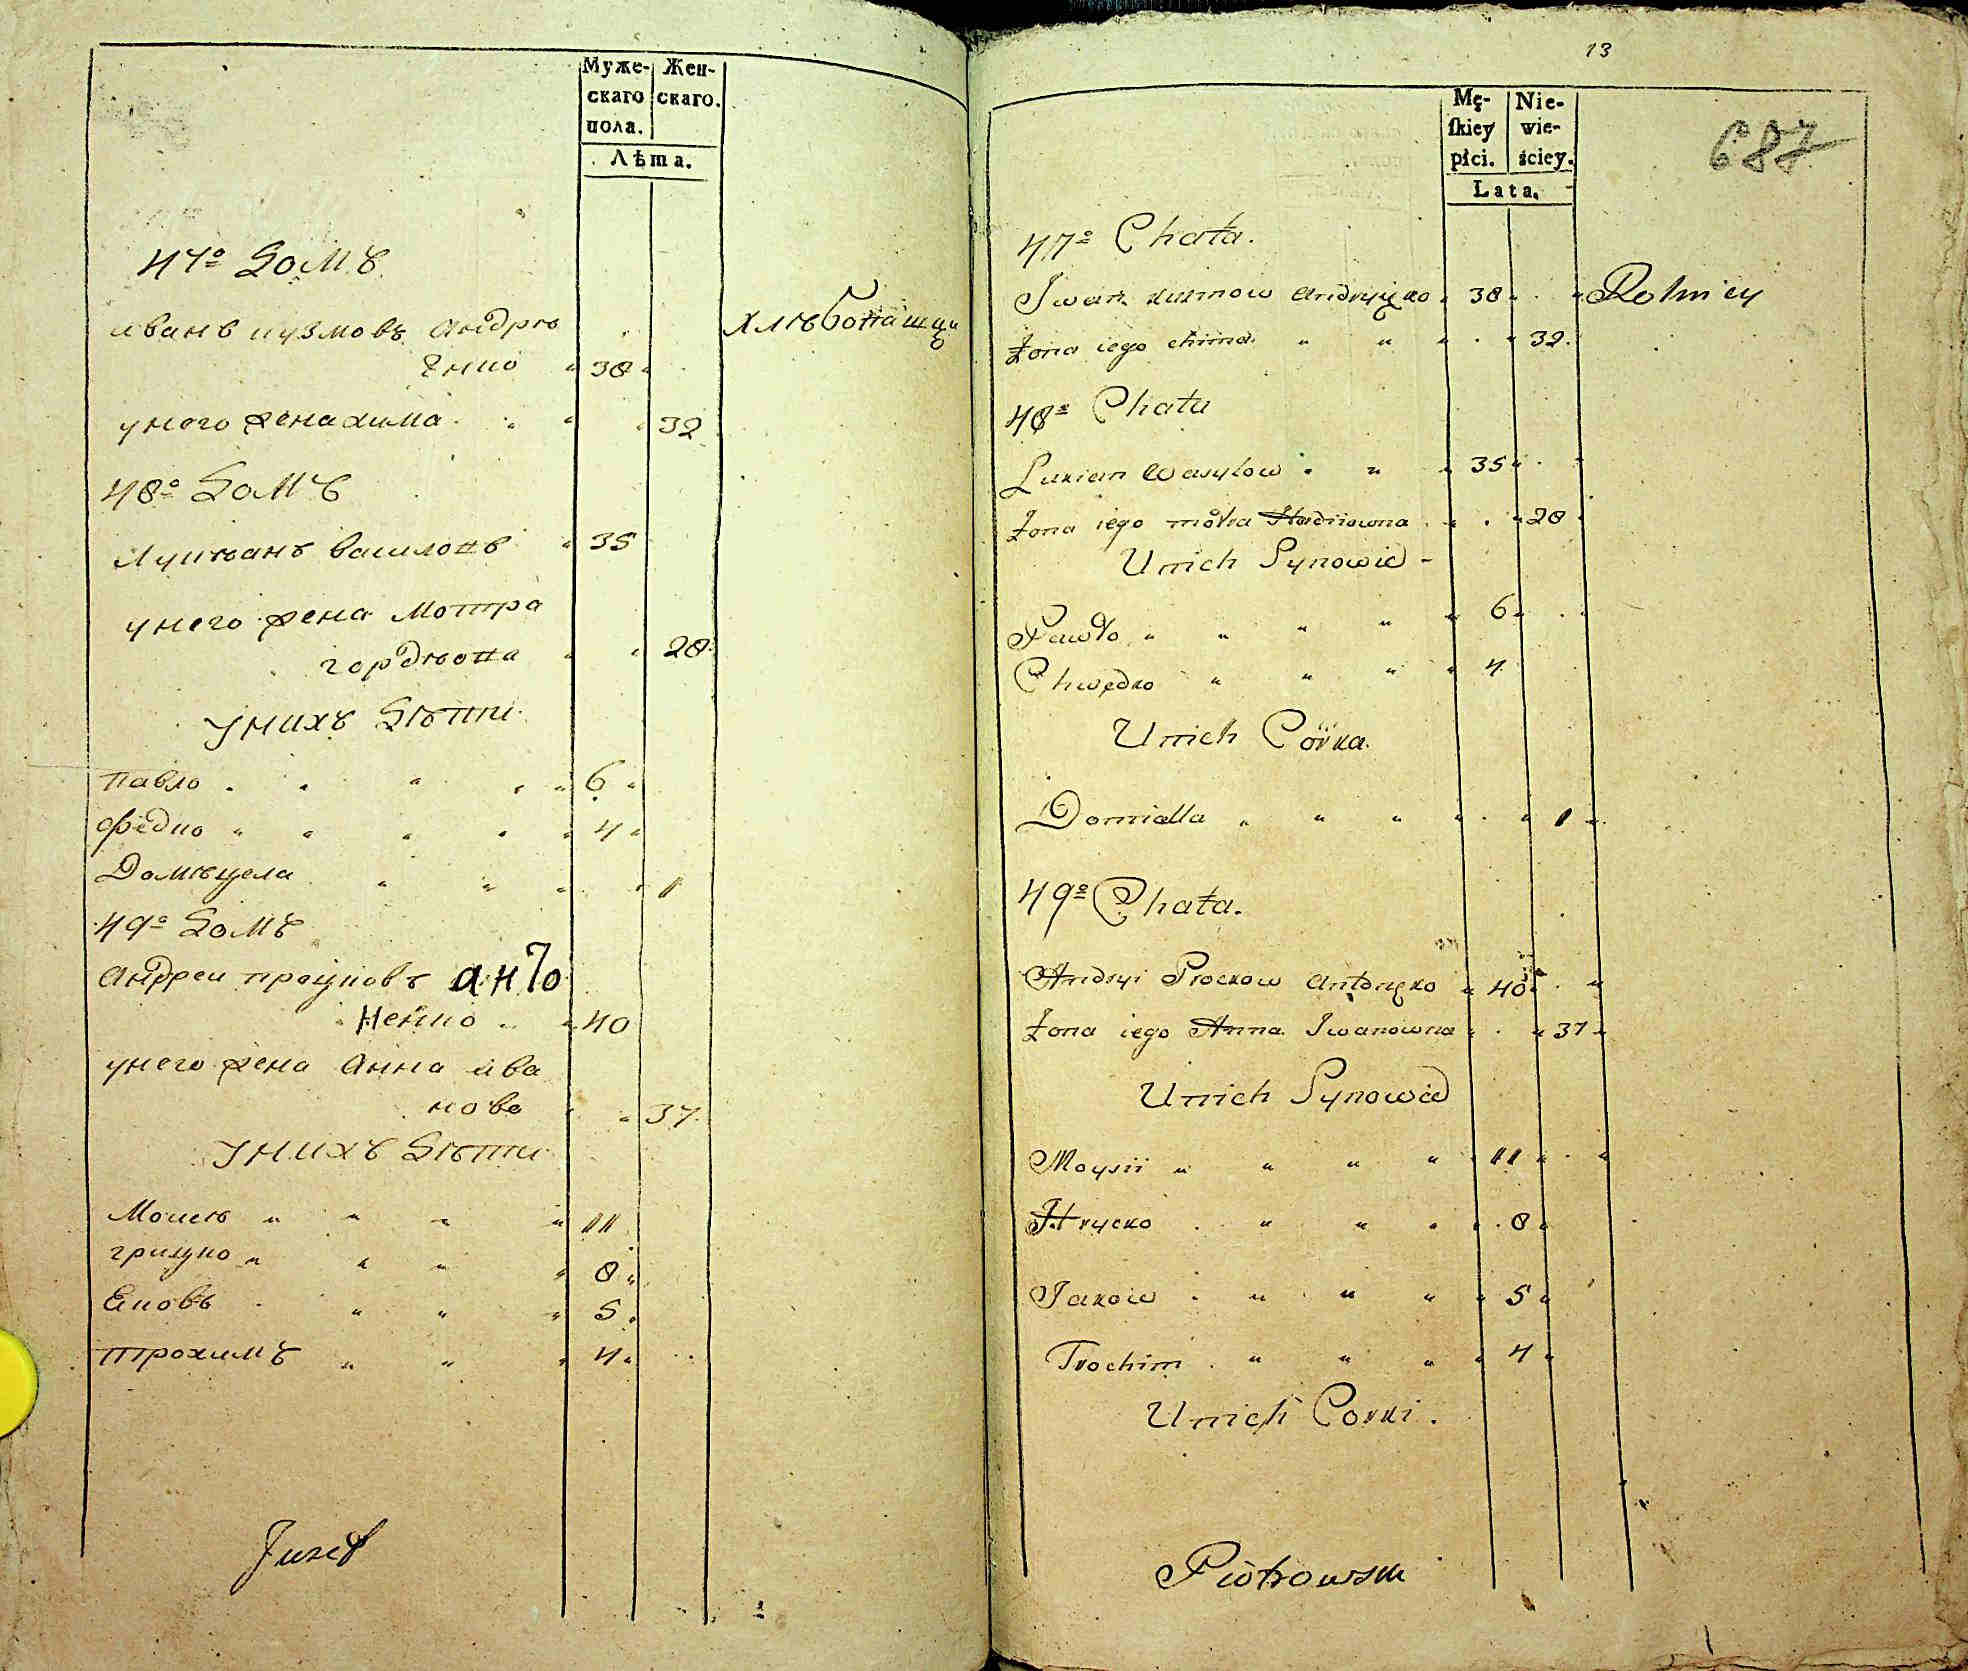 Муже- Жен-
скаго скаго.
пола.
Лѣта.
47º Домъ
иванъ кузмовъ андрѣ
енко 38
хлѣбопашци
унего жена хима 32
48º Домъ
Лукѣанъ василовъ 35
унего жена мотра
гордѣова 28
Унихъ Дѣтти
павло 6
федко 4
Домѣцела 1
49º Домъ
андреи процковъ анто
ненко 40
унего жена анна ива
нова 37
Унихъ Дѣтти
Моисѣ 11
грицко 8
Яковъ 5
трохимъ 4
Juzef
13
687
Mę- Nie-
skiey wie-
płci. ściey.
Lata.
47º Chata.
Iwan kuzmow andryięko 38 Rolnicy
Żona iego chima 32
48º Chata
Lukian Wasylow 35
Żona iego motra Hordiiowna 28
Unich Synowie
Pawło 6
Chwedko 4
Unich Córka.
Domicella 1
49º Chata.
Andryi Prockow antonęko 40
Żona iego Anna Iwanowna 37
Unich Synowie
Moysii 11
Hrycko 8
Jakow 5
Trochim 4
Unich Corki.
Piotrowski